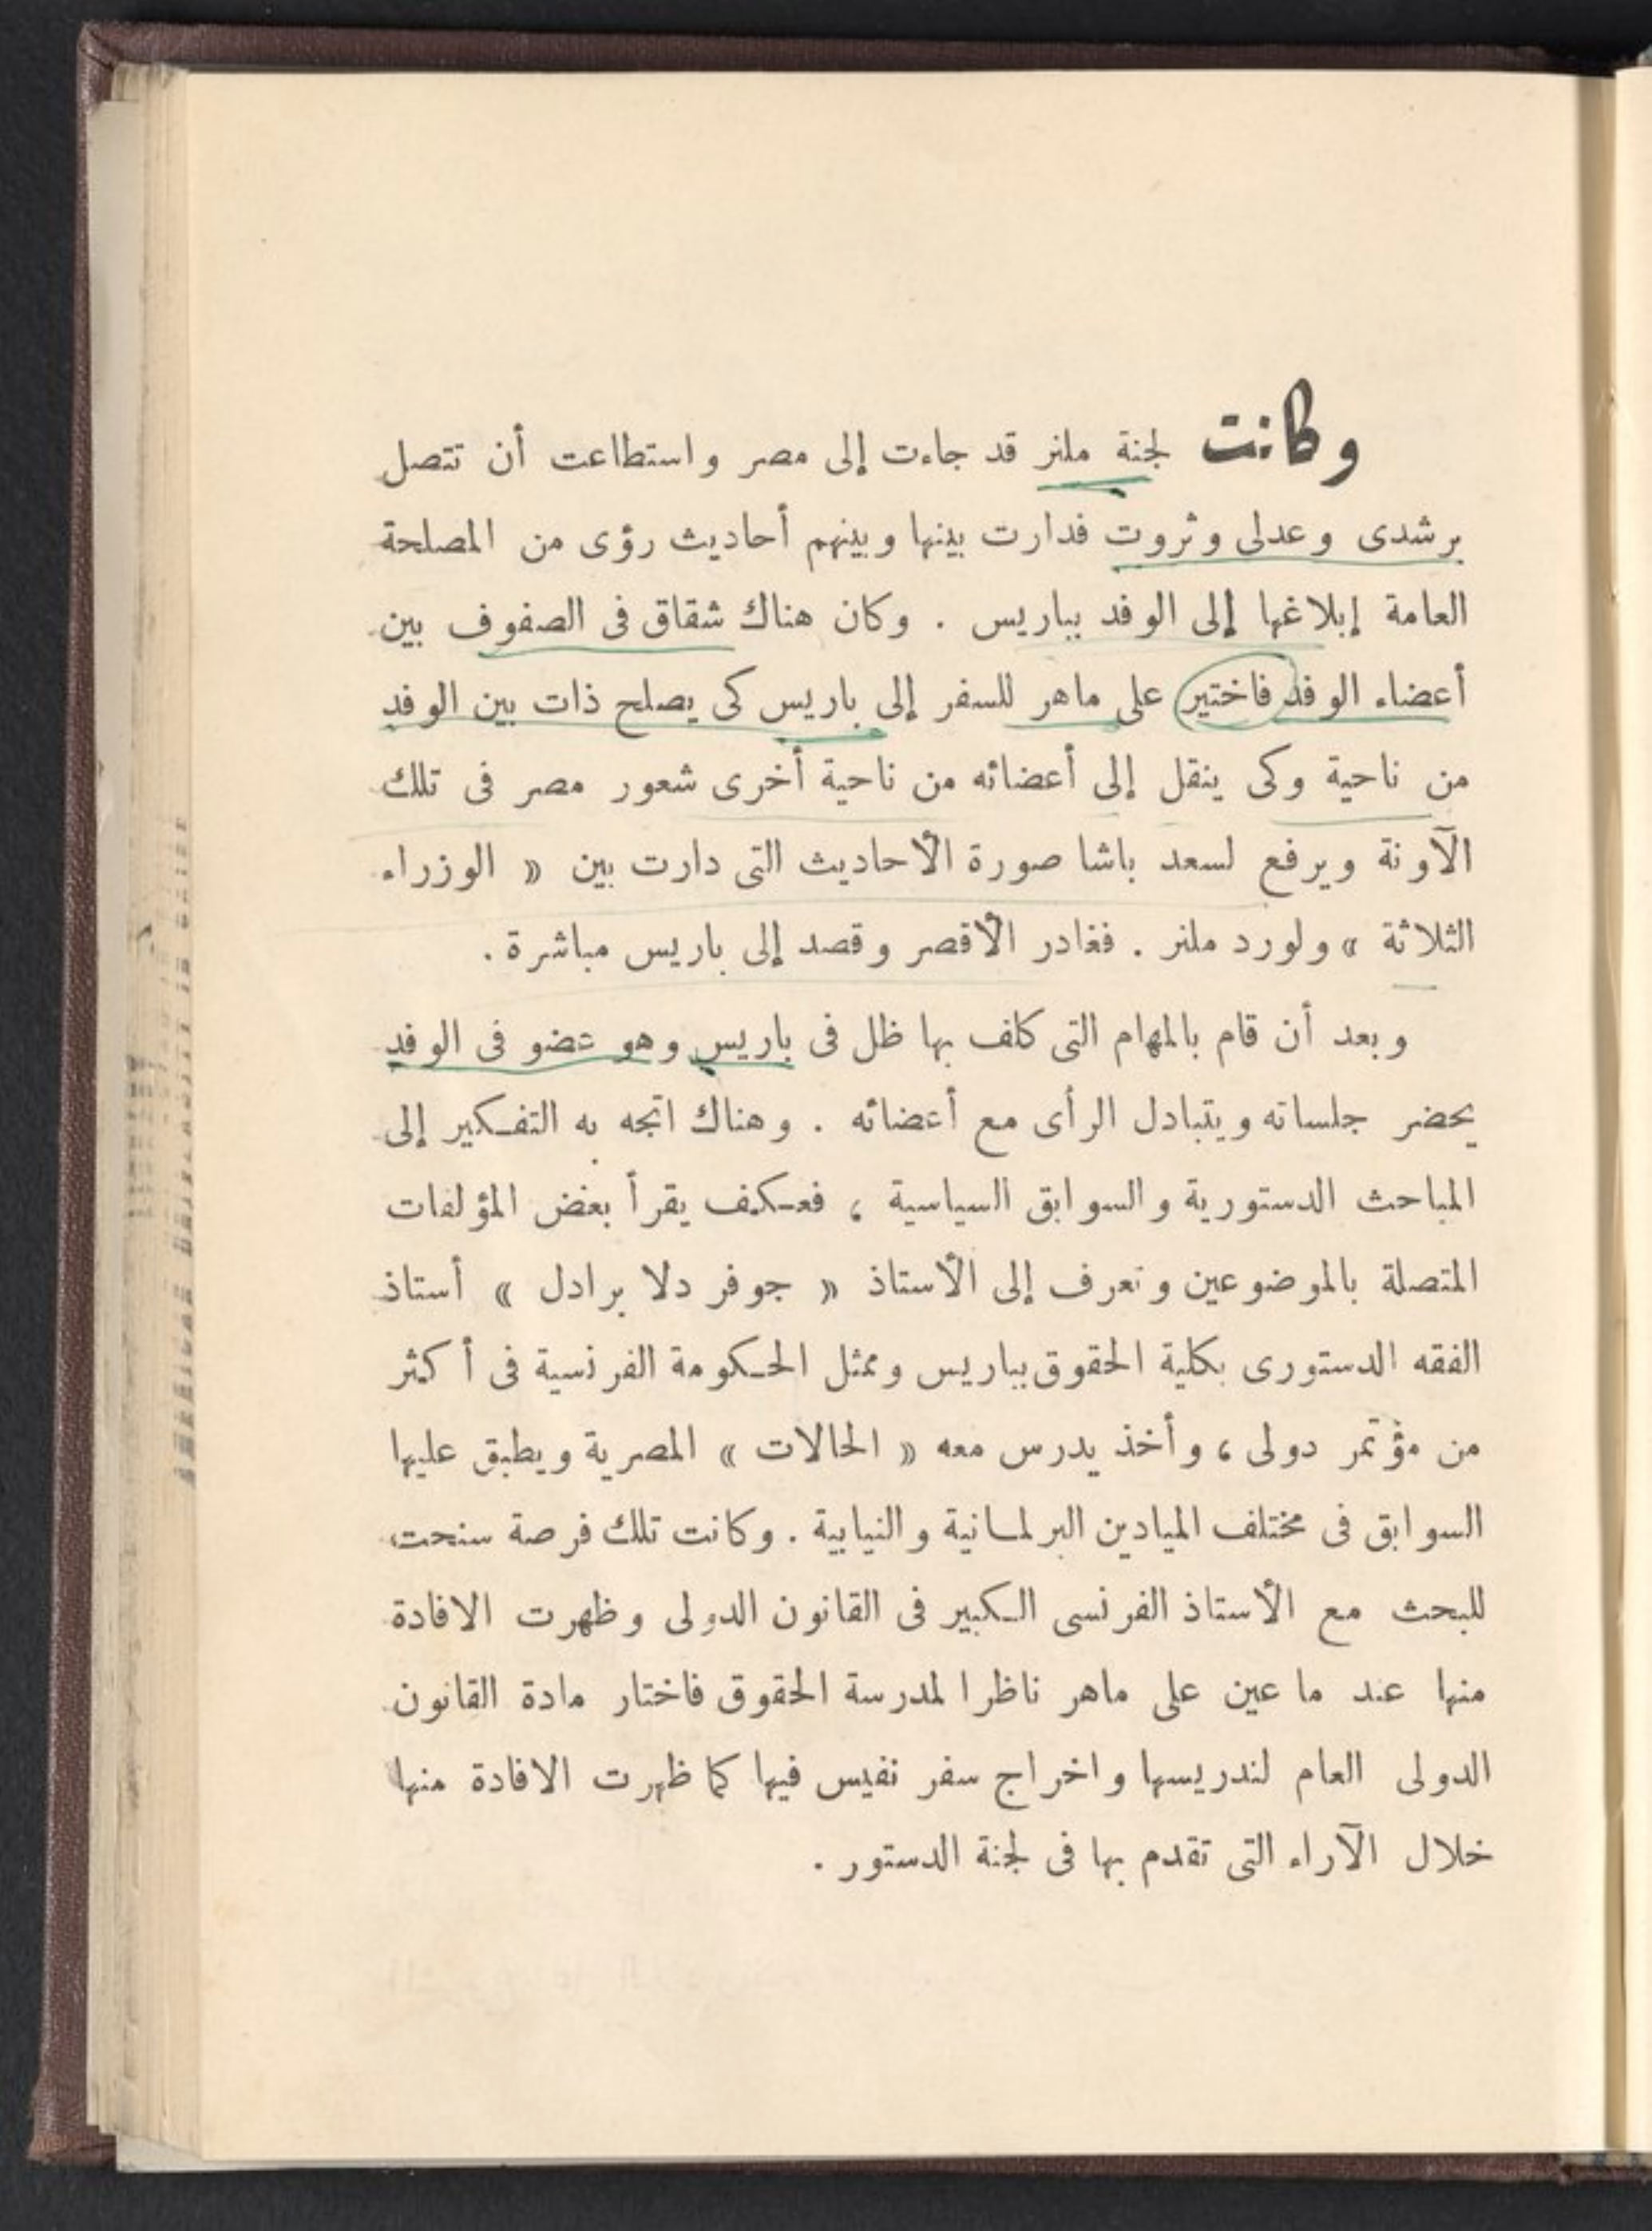 وكانت لجنة ملنر قد جاءت إلى مصر واستطاعت أن تتصل
برشدى وعدلى وثروت فدارت بينها وبينهم أحاديث رؤى من المصلحة
العامة إبلاغها إلى الوفد بباريس . وكان هناك شقاق فى الصفوف بين
أعضاء الوفد فاختير على ماهر للسفر إلى باريس كى يصلح ذات بين الوفد
من ناحية وكى ينقل إلى أعضائه من ناحية أخرى شعور مصر فى تلك
الآونة ويرفع لسعد باشا صورة الأحاديث التى دارت بين « الوزراء
الثلاثة » ولورد ملنر . فغادر الأقصر وقصد إلى باريس مباشرة .
وبعد أن قام بالمهام التى كلف بها ظل فى باريس وهو عضو فى الوفد
يحضر جلساته ويتبادل الرأى مع أعضائه . وهناك اتجه به التفكير إلى
المباحث الدستورية والسوابق السياسية ، فعكف يقرأ بعض المؤلفات
المتصلة بالموضوعين وتعرف إلى الأستاذ « جوفر دلا برادل » أستاذ
الفقه الدستورى بكلية الحقوق بباريس وممثل الحكومة الفرنسية فى أكثر
من مؤتمر دولى ، وأخذ يدرس معه « الحالات » المصرية ويطبق عليها
السوابق فى مختلف الميادين البرلمانية والنيابية . وكانت تلك فرصة سنحت
للبحث مع الأستاذ الفرنسى الكبير فى القانون الدولى وظهرت الافادة
منها عند ما عين على ماهر ناظرا لمدرسة الحقوق فاختار مادة القانون
الدولى العام لتدريسها واخراج سفر نفيس فيها كما ظهرت الافادة منها
خلال الآراء التى تقدم بها فى لجنة الدستور .